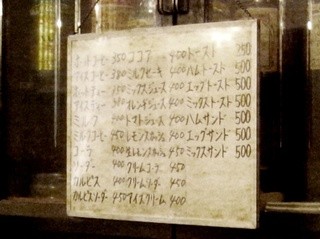 ホットコーヒー 350 ココア 400 トースト 250
アイスコーヒー 350 ミルクセーキ 400 ハムトースト 500
ホットティー 350 ミックスジュース 400 エッグトースト 500
アイスティー オレンジジュース 400 ミックストースト 500
ミルク トマトジュース 400 ハムサンド 500
ミルクコーヒー 450 レモンスカッシュ 450 エッグサンド 500
コーラ 400 生レモンスカッシュ 450 ミックスサンド 500
ソーダー 400 クリームコーラ 450
カルピス 400 クリームソーダー 450
カルピスソーダー 450 アイスクリーム 400